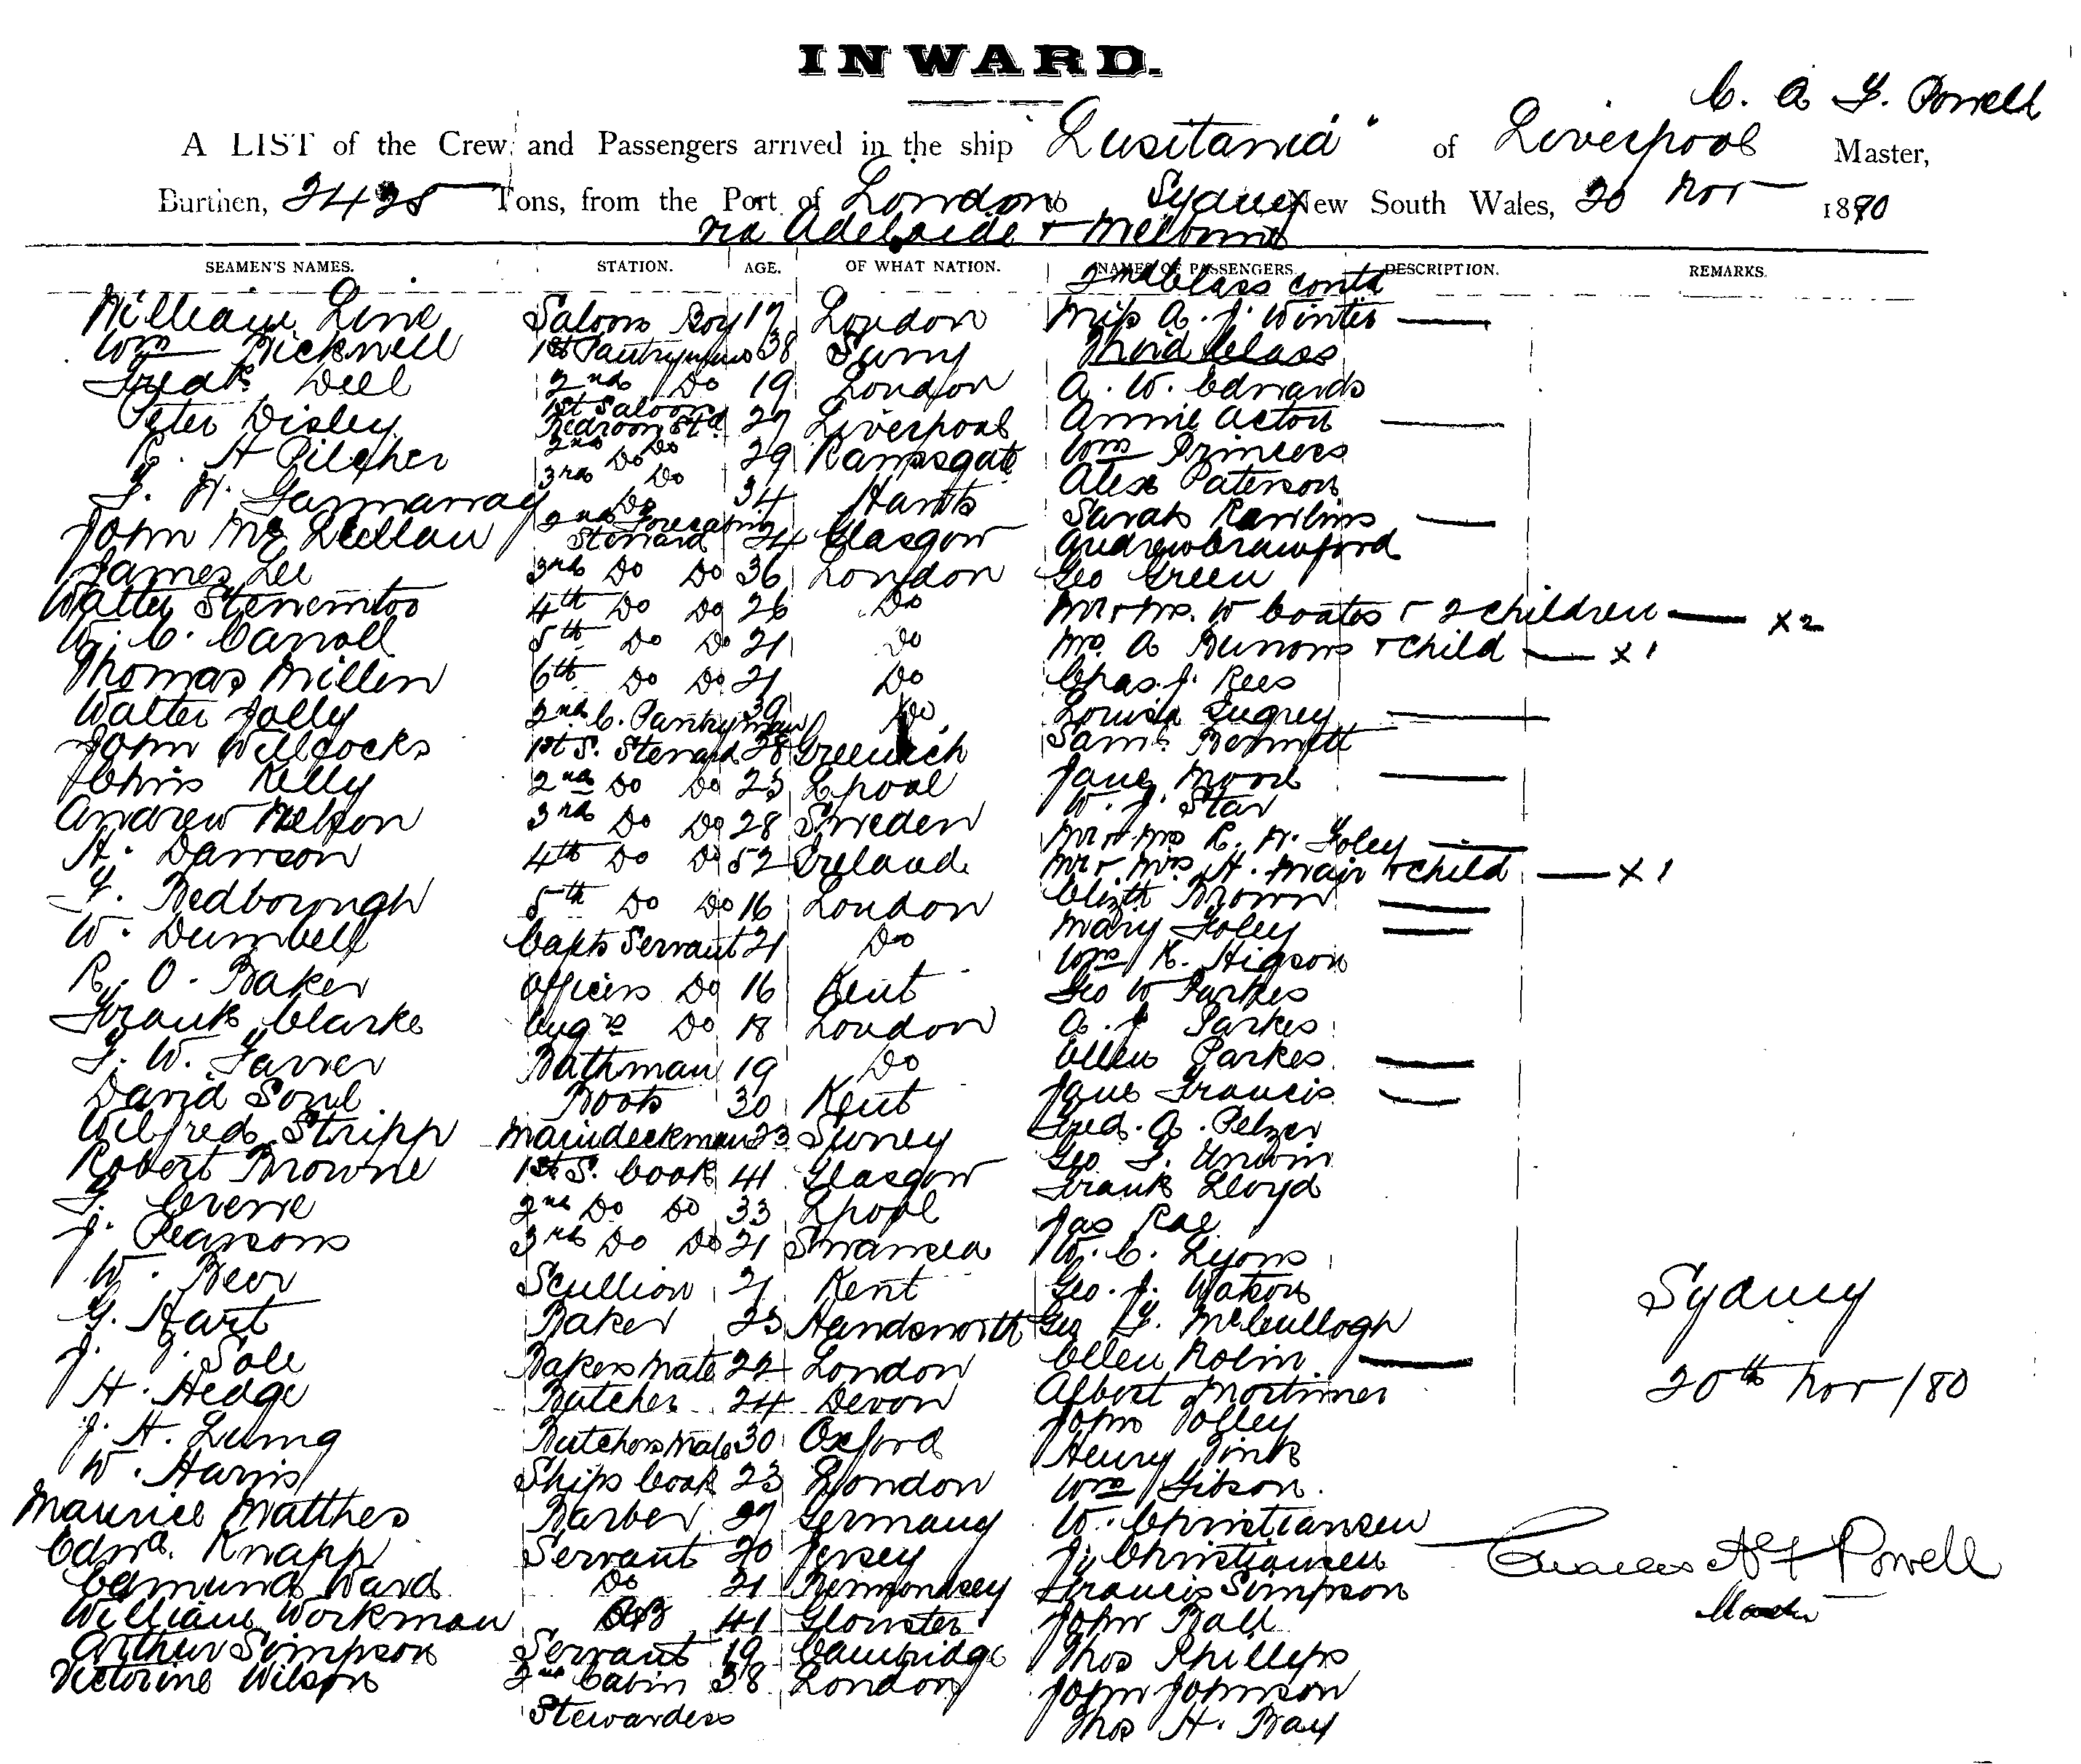 INWARD.
C. A. F. Powell
A LIST of the Crew and Passengers arrived in the ship "Lusitania" of Liverpool Master,
Burthen, 2425 Tons, from the Port of London to Sydney New South Wales, 20 Nov 1880
via Adelaide & Melbourne
SEAMEN'S NAMES. STATION. AGE. OF WHAT NATION. NAMES OF PASSENGERS. DESCRIPTION. REMARKS.
2nd Class contd
William Line Saloon Boy 17 London Miss A. J. Winter
Wm Bicknell 1st Pantryman 38 Surry Third Class
Fredk Dell 2nd Do 19 London A. W. Edwards
Peter Disley 1st Saloon Bedroom Std 27 Liverpool Annie Acton
R. H Pilcher 2nd Do Do 29 Ramsgate Wm Princers
3rd Do Do 34 Hants Alex Paterson
John Mc Lellan 2nd Forecabin Steward 24 Glasgow Sarah Rawlins
Andrew Crawford
James Lee 3rd Do Do 36 London Geo Green
Walter 4th Do Do 26 Do Mr & Mrs. W Coates & 2 children x2
W. C. Carroll 5th Do Do 21 Do Mrs. A Burrows & child x1
Thomas Millen 6th Do Do 21 Do Chas. J. Rees
Walter Jolly 2nd C. Pantryman 39 Do Louisa
John Willcocks 1st S. Steward 28 Greenwich Saml. Bennett
Chris Kelly 2nd Do Do 23 Lpool Jane Moore
W. J. Star
Andrew Nelson 3rd Do Do 28 Sweden Mr & Mrs R. W. Foley
H. Dawson 4th Do Do 52 Ireland Mr & Mrs H. Mair & child x1
F. Bedborough 5th Do Do 16 London Elizth Brown
W. Dumbell Capts Servant 21 Do Mary Foley
R. O. Baker Officers Do 16 Kent Wm R. Higson
Geo W Parkes
Frank Clarke Engrs Do 18 London A. J. Parkes
F. W. Farrer Bathman 19 Do Ellen Parkes
David Soul Boots 30 Kent Jane Francis
Wilfred Stripp Maindeckman 23 Surrey Fred. A. Pelzer
Robert Browne 1st S. Cook 41 Glasgow Geo. F. Unwin
Frank Lloyd
2nd Do Do 33 Lpool Jas Rae
J. Pearsons 3rd Do Do 21 Swansea W. C. Lyons
W. Beer Scullion 21 Kent Geo. J. Watson
G. Hart Baker 23 Handsworth Geo F. McCullogh
J. J. Sole Bakers Mate 22 London Ellen Robin
H. Hedge Butcher 24 Devon Albert Mortimer
John Polley
J. H. Butchers Mate 30 Oxford Henry Pink
W. Harris Ships Cook 23 London Wm Gibson.
Maurice Matthes Barber 27 Germany W. Christiansen
Edwd. Knapp Servant 20 Jersey J. Christiansen
Edmund Ward Do 21 Bermondsey Francis Simpson
William Workman AB 41 Glouster John Ball
Arthur Simpson Servant 19 Cambridge Thos Phillips
Victorine Wilson 2nd Cabin 38 London John Johnson
Stewardess Thos H. Bay
Sydney
20th Nov /80
Charles A F Powell
Master